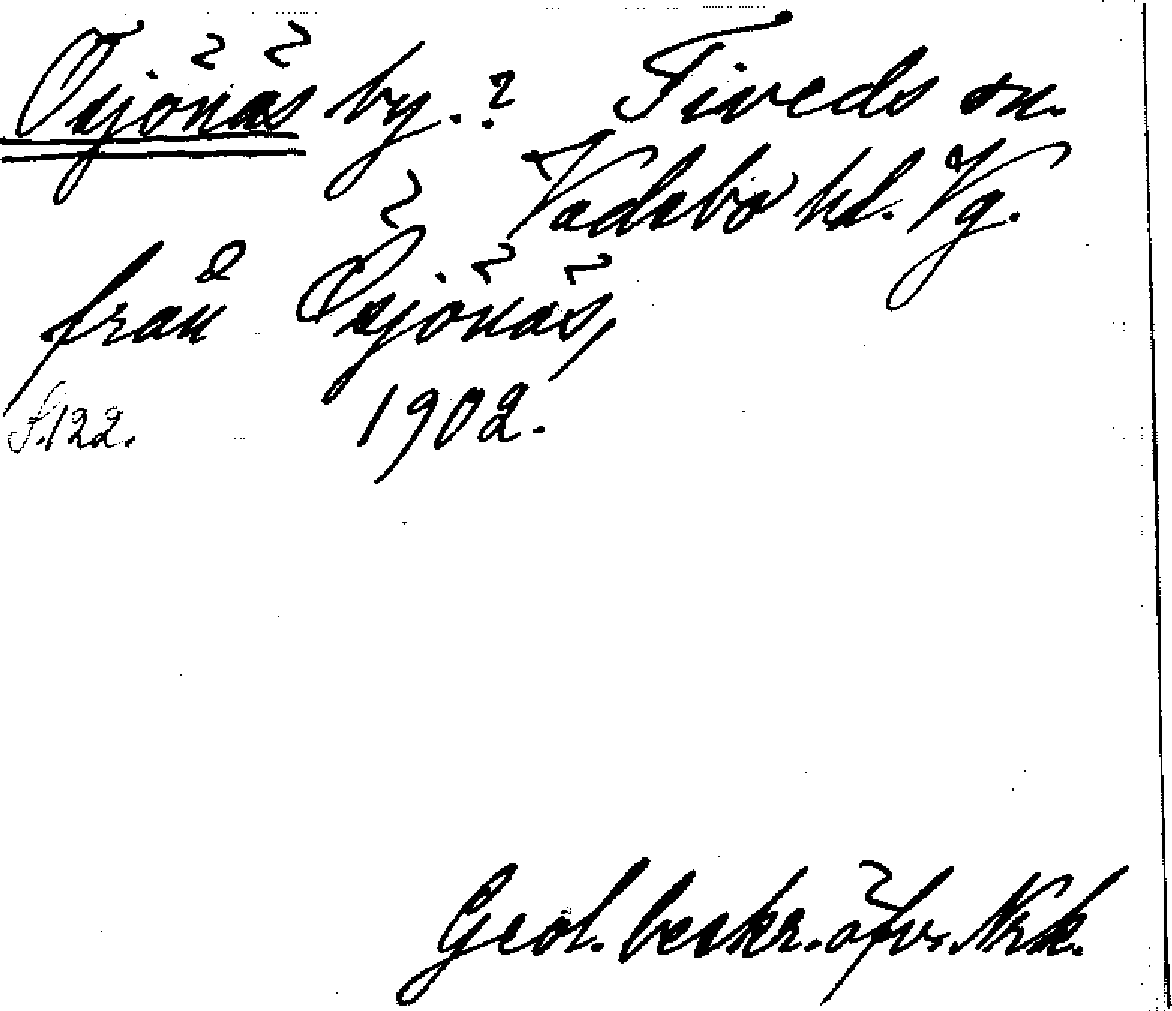 Osjönäs by.? Tiveds sn.
Vadsbo hd. Vg.
från Ösjönäs,
S.122. 1902.
Geol. beskr. öfv. Nrk.